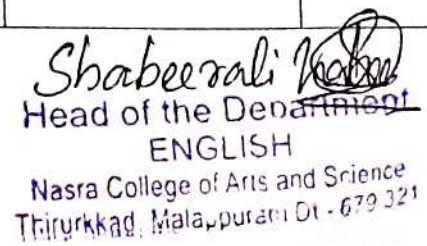 Shabeerali
Head of the Department
ENGLISH
Nasra College of Arts and Science
Thirurkkad, Malappuram Dt - 679 321